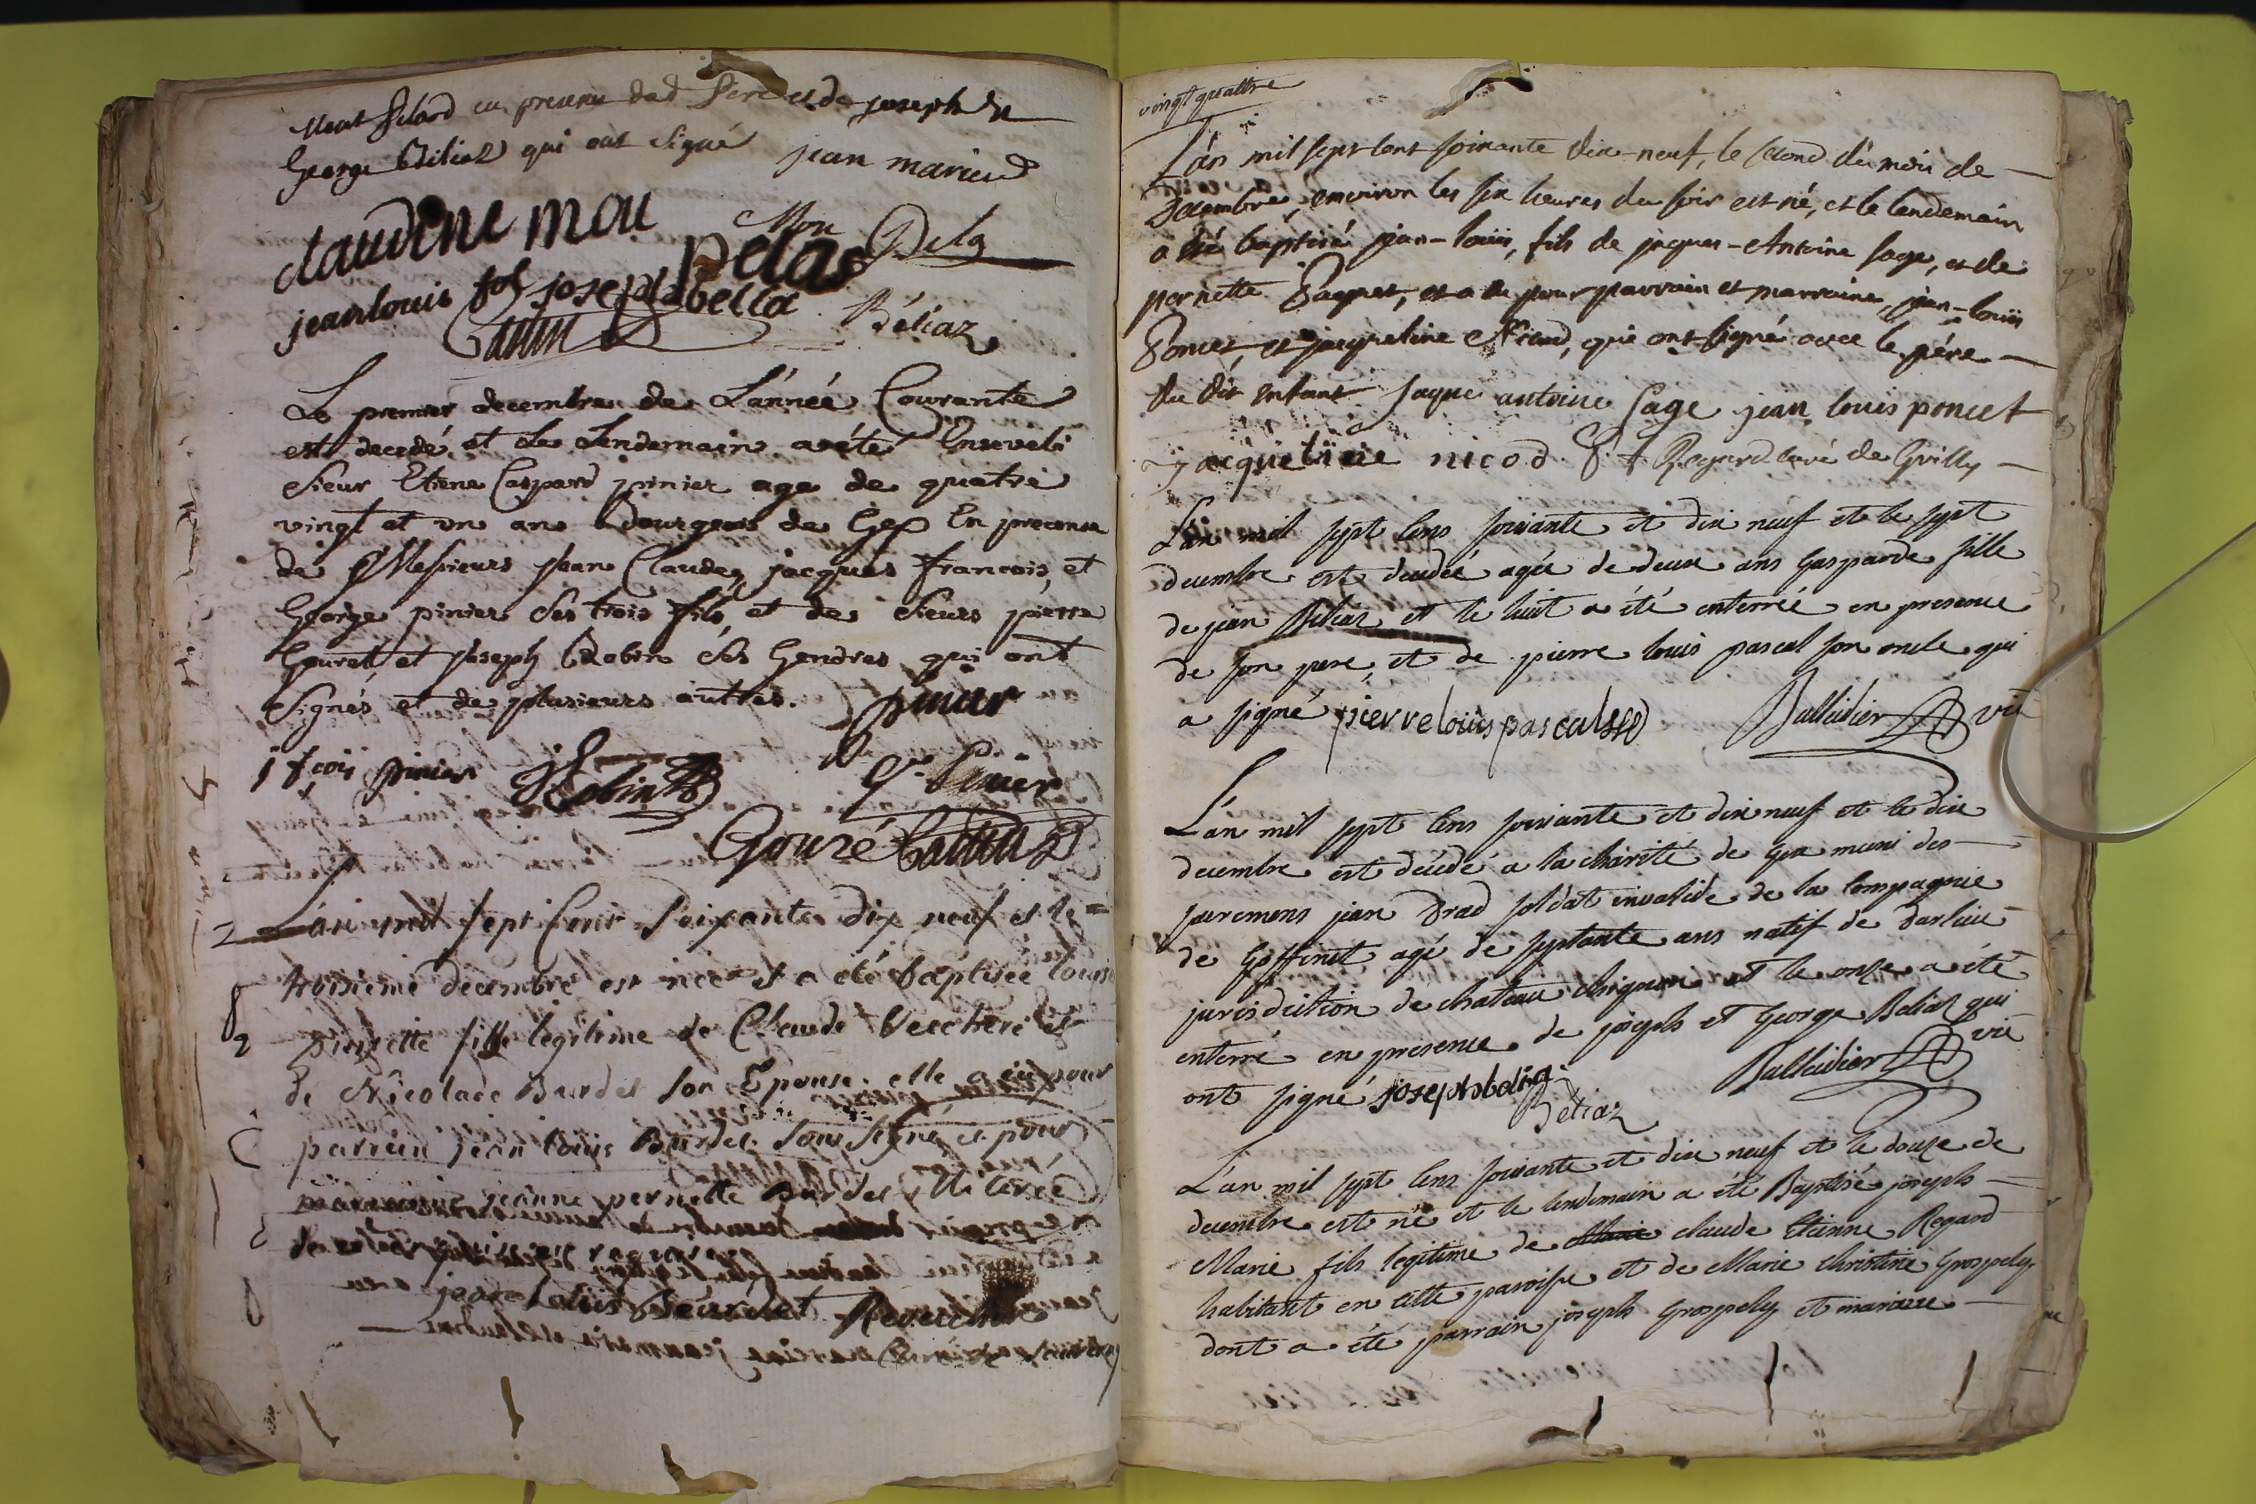 en presence dud Pere et de joseph et
George Béliaz qui ont signé
jean marie
claudine mou
Pelas
jean louis joseph belia
Béliaz
Le premier decembre de L'année Courante
est decedé, et Le Lendemain a été Enseveli
Sieur Etiene Caspard pinier age de quatre
vingt et un ans Bourgeois de Gex En presence
de Messieurs Jean Claude, jacques francois, et
George pinier Ses trois fils, et des Sieurs pierre
Gouret, et Joseph Robin Ses Gendres qui ont
Signés, et de plusieurs autres.
pinier
j fcois pinier
J Robin
G. Pinier
Gouré
L'an mil sept Cent Soixante dix neuf et le
troisieme decembre est née et a été baptisée louise
pierrette fille legitime de Claude Verchere et
de Nicolade Burdet son Epouse. elle a eu pour
parrein jean louis Burdet Soussigné et pour
marraine jeanne pernette Burdet illiterée
jean Louis Beurdet
vingt quattre
L'an mil sept cent soixante dix-neuf, le second du mois de
Decembre, environ les six heures du soir est né, et le lendemain
a été baptisé jean-louis, fils de jaques-Antoine sage, et de
pernette Pagnet, et a eu pour parrain et marraine, jean-louis
Poncet, et jacqueline Nicod, qui ont signé avec le pére
du dit enfant jaque antoine sage jean louis poncet
jacqueline nicod Regard curé de Grilly
L'an mil sept cens soixante et dix neuf et le sept
decembre est decedée agée de deux ans Gasparde fille
de jean Béliaz et le huit a été enterrée en presence
de son pere, et de pierre louis pascal son oncle qui
a signé pierre loüis pascal Balleidier vic
L'an mil sept cens soixante et dix neuf et le dix
decembre est decedé a la charité de Gex muni des
sacremens jean Drad soldat invalide de la compagnie
de Goffinet agé de septante ans natif de
jurisdiction de chateau et le onze a été
enterré en presence de joseph et George Beliaz qui
ont signé joseph belia Balleidier vic
Béliaz
L'an mil sept cens soixante et dix neuf et le douze de
decembre est né et le lendemain a été Baptisé joseph
Marie fils legitime de claude Etienne Regard
habitant en cette paroisse et de Marie christine Grospely
dont a été parrain joseph Grospely et maraine